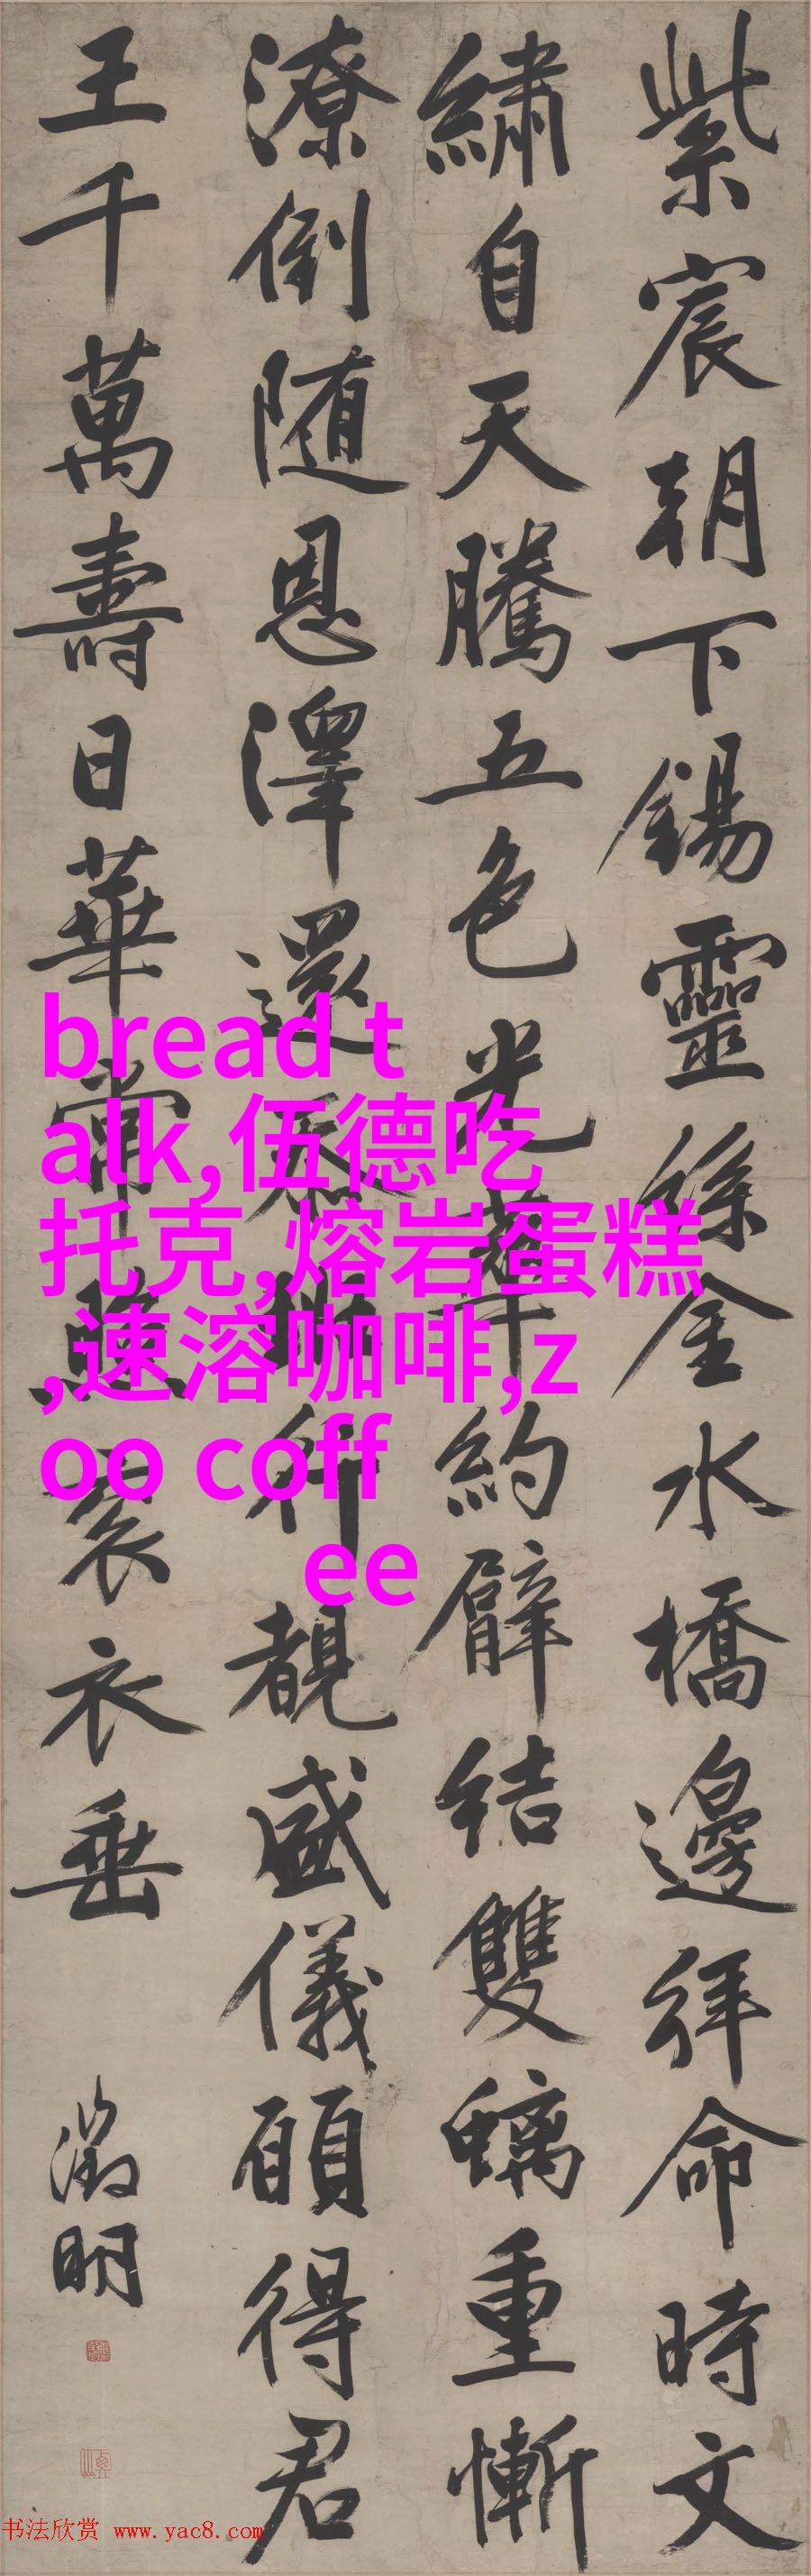 紫宸朝下錫靈絲金水橋邊拜命時文
繡自天騰五色光華約臂結雙螭重慚
潦倒随恩澤還忝班行覩盛儀願得君
王千萬壽日華常照袞衣垂
徵明
bread t
alk,伍德吃
托克,熔岩蛋糕
,速溶咖啡,z
oo coff
ee
书法欣赏 www.yac8.com